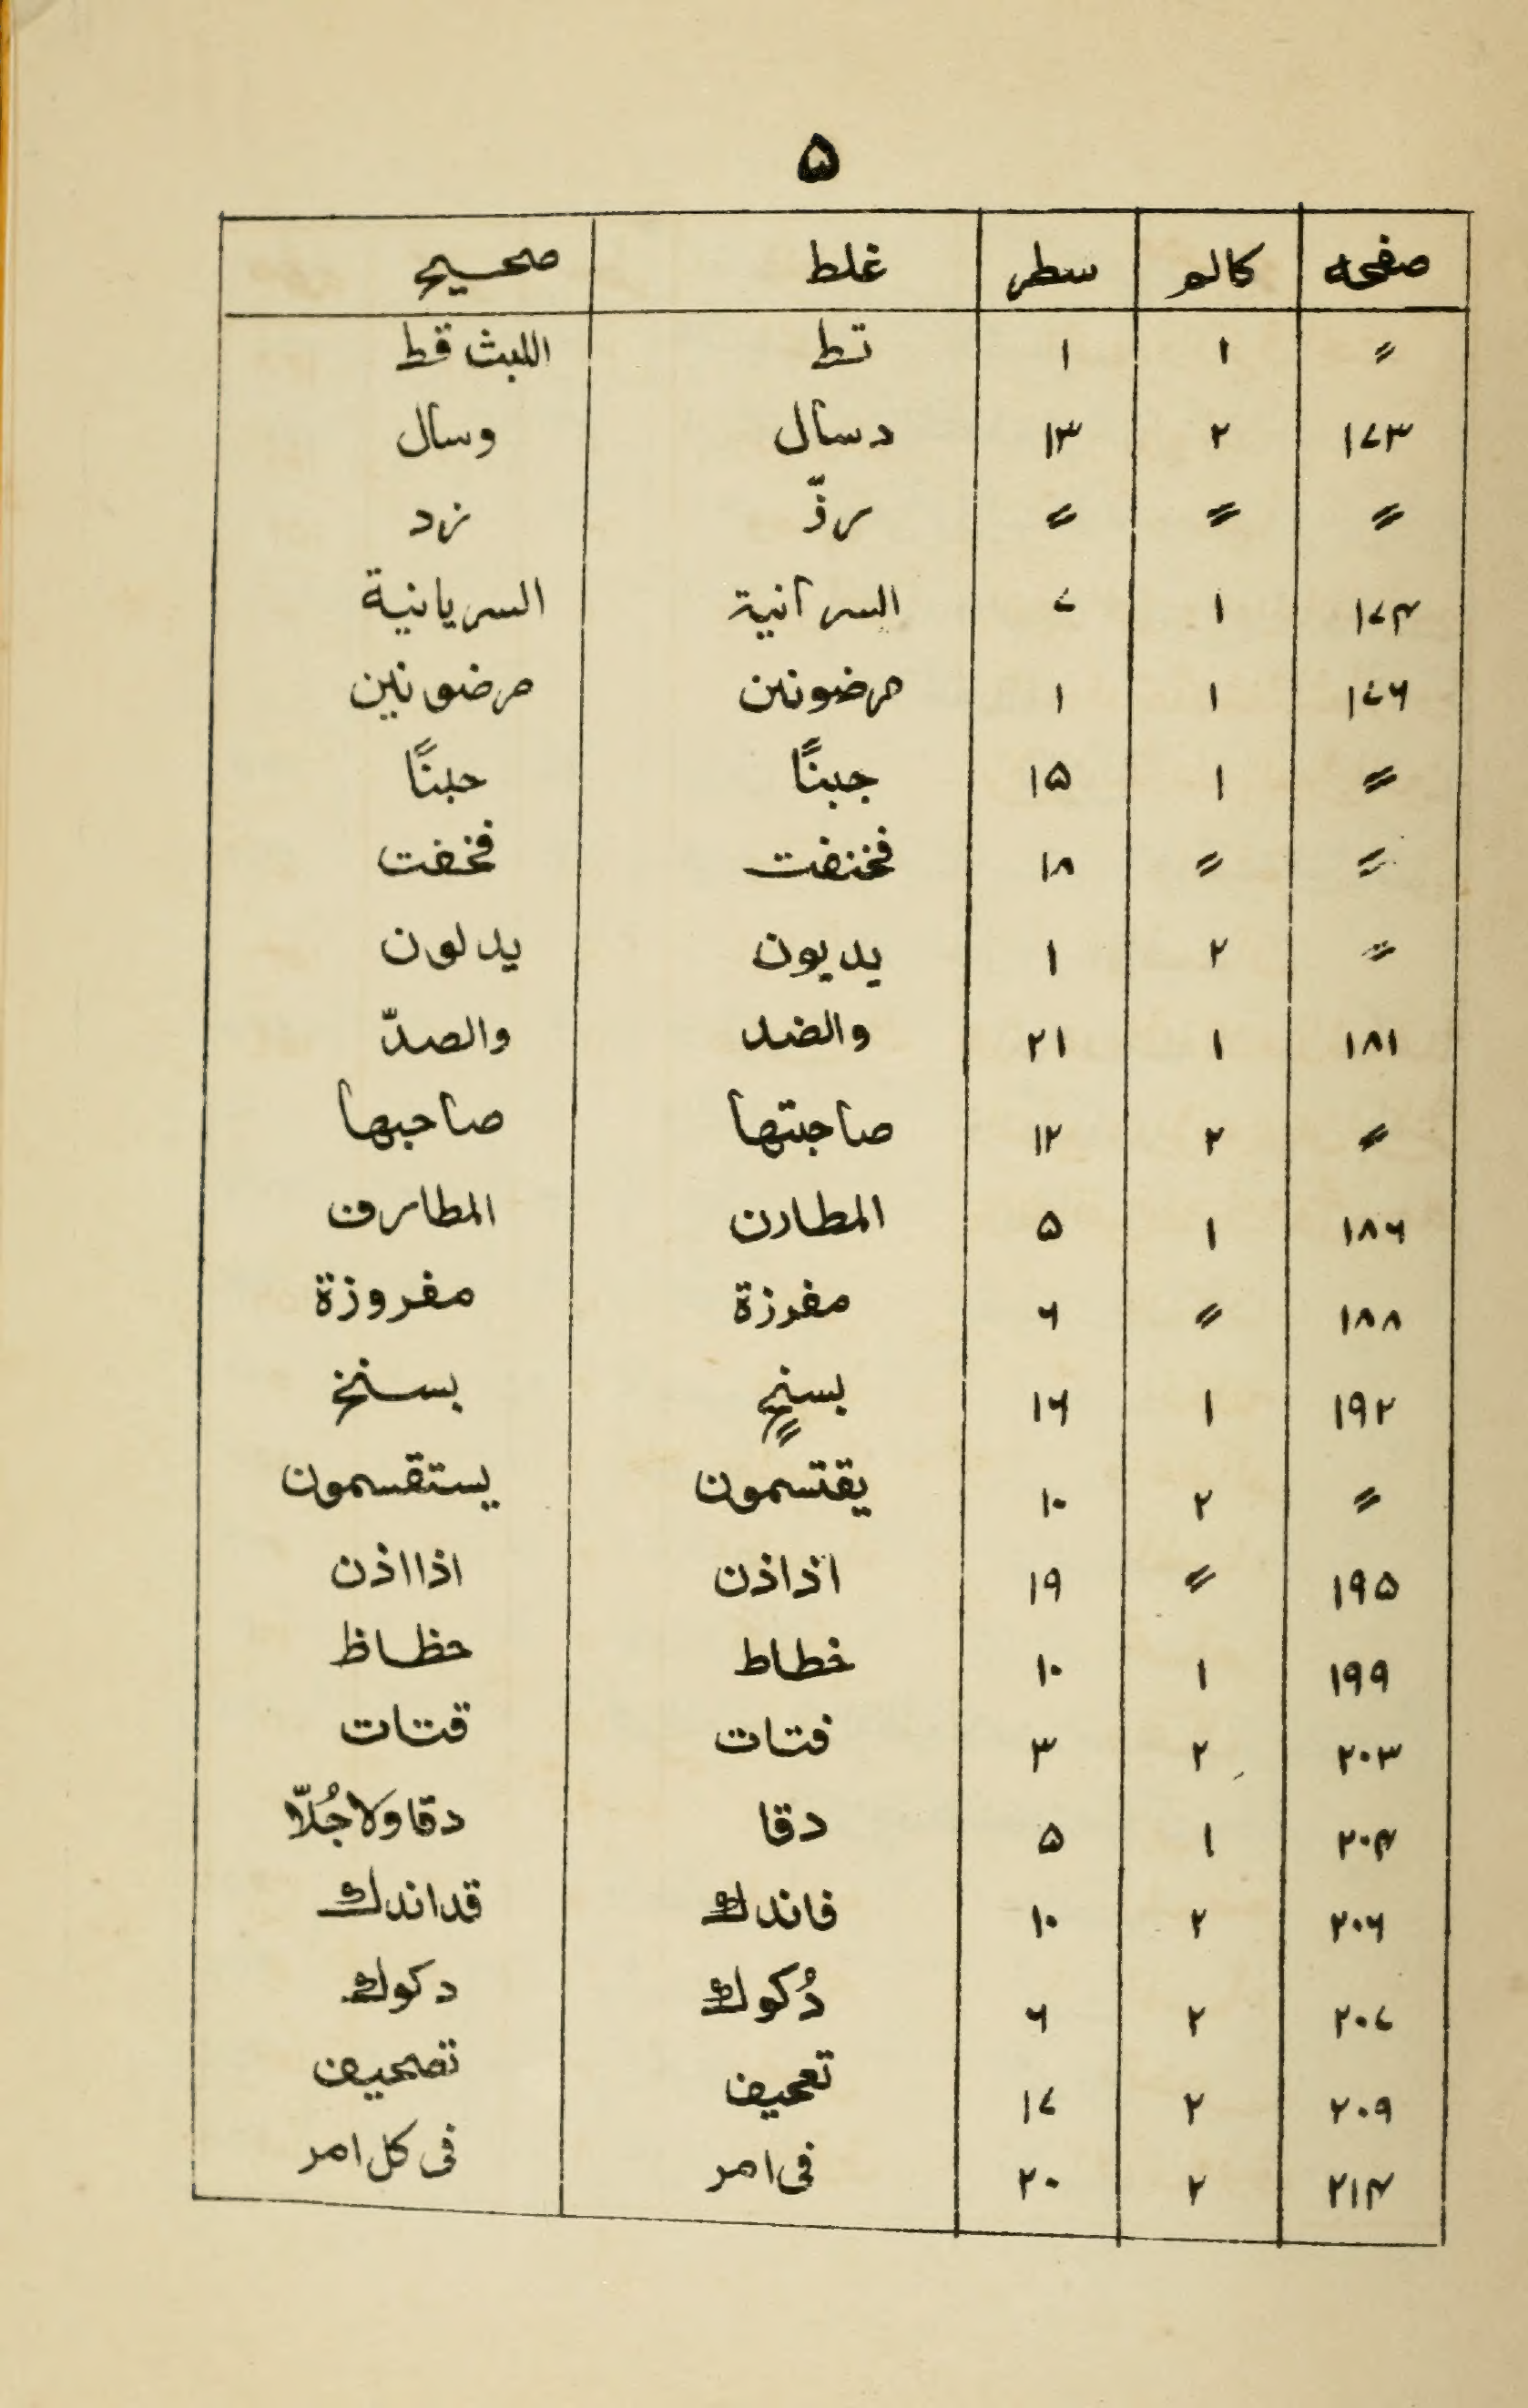 ۵
صفحه کالم سطر غلط صحیح
〃 ۱ ۱ تط اللبث قط
۱۷۳ ۲ ۱۳ دسأل وسأل
〃 〃 〃 رذّ زد
۱۷۴ ۱ ۷ السرآنیة السریانیة
۱۷۶ ۱ ۱ مرضونن مرضونین
〃 ۱ ۱۵ جبنًا حبنًا
〃 〃 ۱۸ فخنفت فخفت
〃 ۲ ۱ یدیون یدلون
۱۸۱ ۱ ۲۱ والضد والصدّ
〃 ۲ ۱۲ صاجتها صاحبها
۱۸۶ ۱ ۵ المطارن المطارف
۱۸۸ 〃 ۶ مفرزة مفروزة
۱۹۲ ۱ ۱۶ بسنحٍ بسنخ
〃 ۲ ۱۰ یقتسمون یستقسمون
۱۹۵ 〃 ۱۹ اذاذن اذااذن
۱۹۹ ۱ ۱۰ خطاط حظاظ
۲۰۳ ۲ ۳ فتات قتات
۲۰۴ ۱ ۵ دقا دقا ولا جُلّا
۲۰۶ ۲ ۱۰ فاندك قداندك
۲۰۷ ۲ ۶ دُکوك دکوك
۲۰۹ ۲ ۱۷ تعحیف تصحیف
۲۱۴ ۲ ۲۰ فی امر فی کل امر